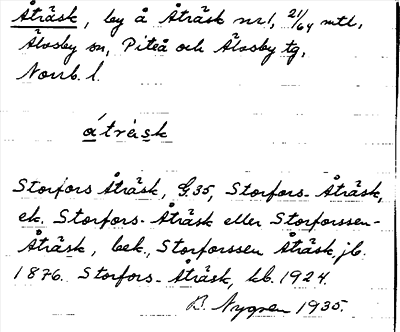 Åträsk, by å Åträsk nr 1, 21/64 mtl,
Älvsby sn, Piteå och Älvsby tg,
Norrb. l.
åträsk
Storfors Åträsk, G.35, Storfors-Åträsk,
ek. Storfors-Åträsk eller Storforssen-
Åträsk, bek., Storforssen Åträsk, jb.
1876. Storfors-Åträsk, kb. 1924.
B. Nygren 1935.